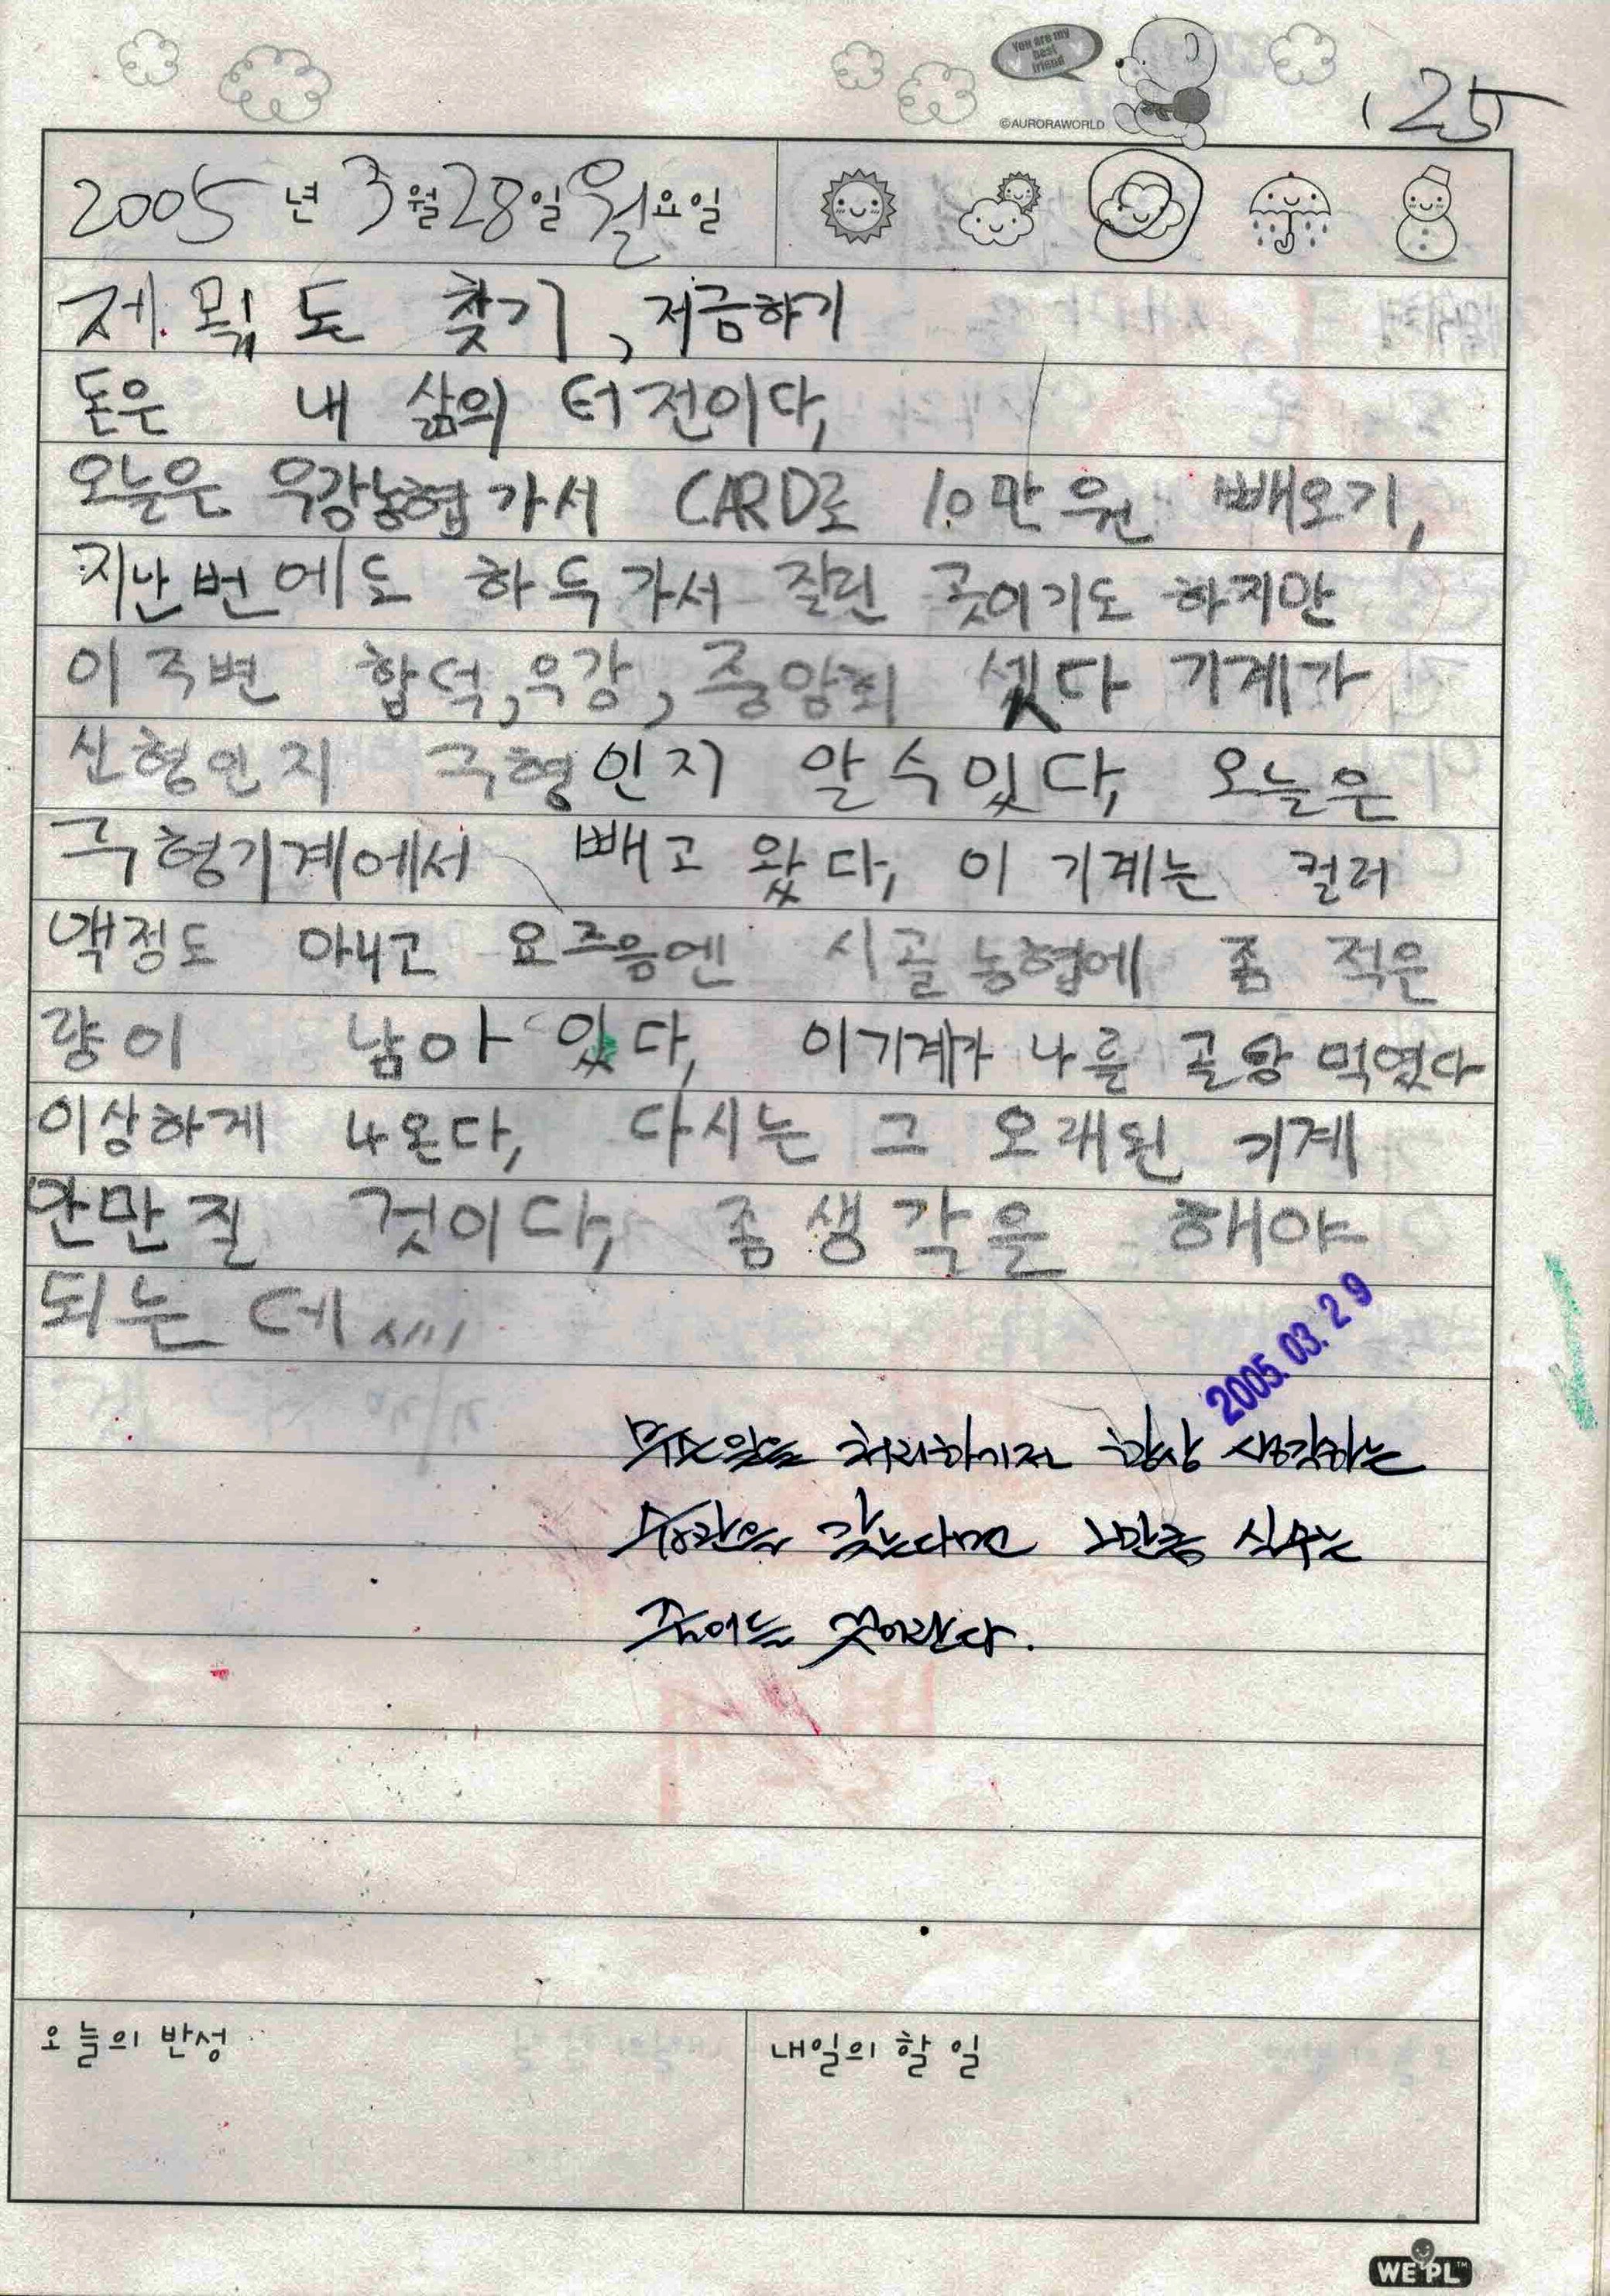 You are my best friend
©AURORAWORLD
25
2005년 3월 28일 월요일
제목 돈 찾기, 저금하기
돈은 내 삶의 터전이다,
오늘은 우강농협가서 CARD로 10만원 빼오기,
지난번에도 하두 가서 질린 곳이기도 하지만
이 주변 합덕,우강, 중앙회 셋다 기계가
신형인지 구형인지 알수있다, 오늘은
구형기계에서 빼고 왔다, 이 기계는 컬러
액정도 아니고 요즈음엔 시골농협에 좀 적은
량이 남아 있다, 이기계가 나를 골탕 먹였다
이상하게 나온다, 다시는 그 오래된 기계
안만질 것이다, 좀 생각을 해야
되는데
2005. 03. 29
무슨일을 처리하기전 항상 생각하는
습관을 갖는다면 그만큼 실수는
줄어드는 것이란다.
오늘의 반성
내일의 할 일
WE PL™